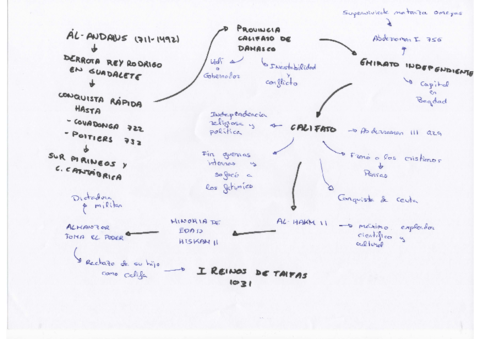 ÁL-ANDALUS (711-1492)
DERROTA REY RODRIGO
EN GUADALETE
CONQUISTA RÁPIDA
HASTA
- COVADONGA 722
- POITIERS 732
SUR PIRINEOS Y
C. CANTÁBRICA
PROVINCIA
CALIFATO DE
DAMASCO
Walí
Gobernador
Inestabilidad
y
conflicto
Superviviente matanza omeyas
Abderraman I 756
EMIRATO INDEPENDIENTE
Capital
en
Bagdad
CALIFATO
Independencia
religiosa y
política
Abderraman III 929
Fin guerras
internas y
a los fatimíes
Frenó a los cristianos
Conquista de Ceuta
AL-HAKM II
máximo esplendor
científico y
cultural
MINORIA DE
EDAD
HISHAM II
ALMANZOR
TOMA EL PODER
Dictadura
militar
Rechazo de su hijo
como califa
I REINOS DE TAIFAS
1031